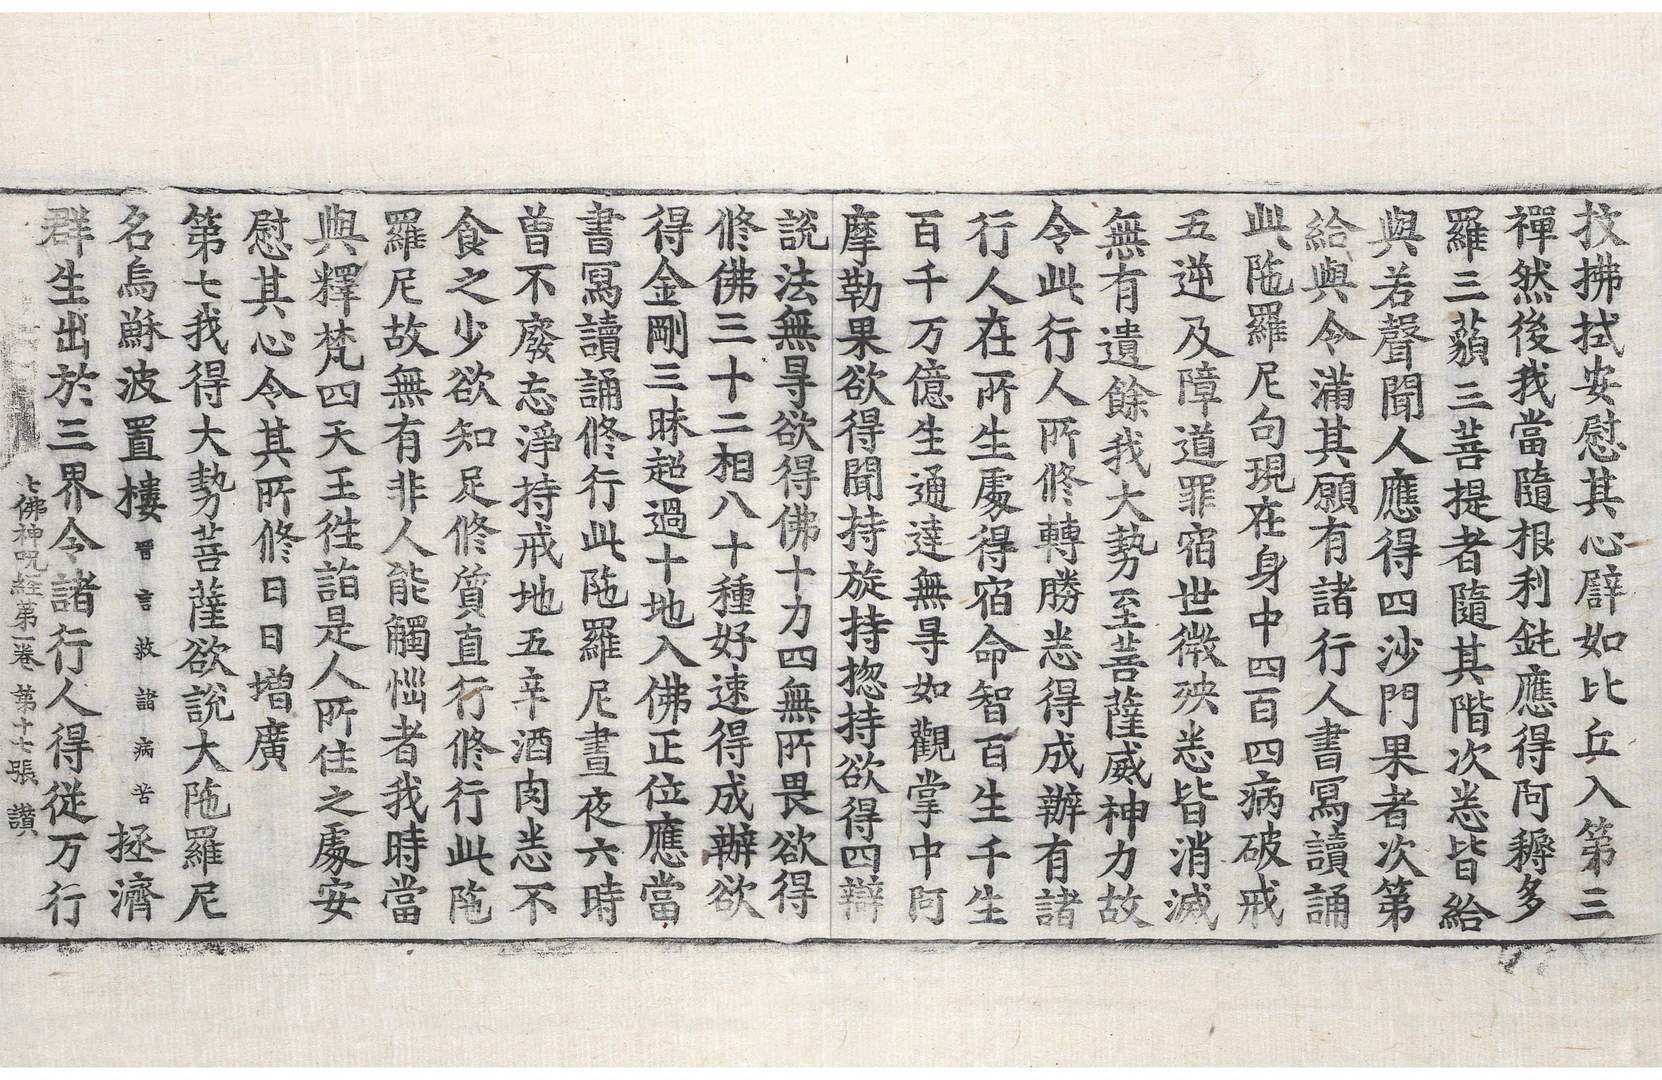 抆拂拭安慰其心譬如比丘入第三
禪然後我當隨根利鈍應得阿耨多
羅三藐三菩提者隨其階次悉皆給
與若聲聞人應得四沙門果者次第
給與令滿其願有諸行人書寫讀誦
此陁羅尼句現在身中四百四病破戒
五逆及障道罪宿世微殃悉皆消滅
無有遺餘我大勢至菩薩威神力故
令此行人所修轉勝悉得成辦有諸
行人在所生處得宿命智百生千生
百千万億生通達無㝵如觀掌中阿
摩勒果欲得聞持旋持惣持欲得四辯
說法無㝵欲得佛十力四無所畏欲得
修佛三十二相八十種好速得成辦欲
得金剛三昧超過十地入佛正位應當
書寫讀誦修行此陁羅尼晝夜六時
曾不廢忘淨持戒地五辛酒肉悉不
食之少欲知足修質直行修行此陁
羅尼故無有非人能觸惱者我時當
與釋梵四天王往詣是人所住之處安
慰其心令其所修日日增廣
第七我得大勢菩薩欲說大陁羅尼
名烏穌波置樓晉言救諸病苦拯濟
群生出於三界令諸行人得從万行
七佛神呪經第一卷 第十七張 讃